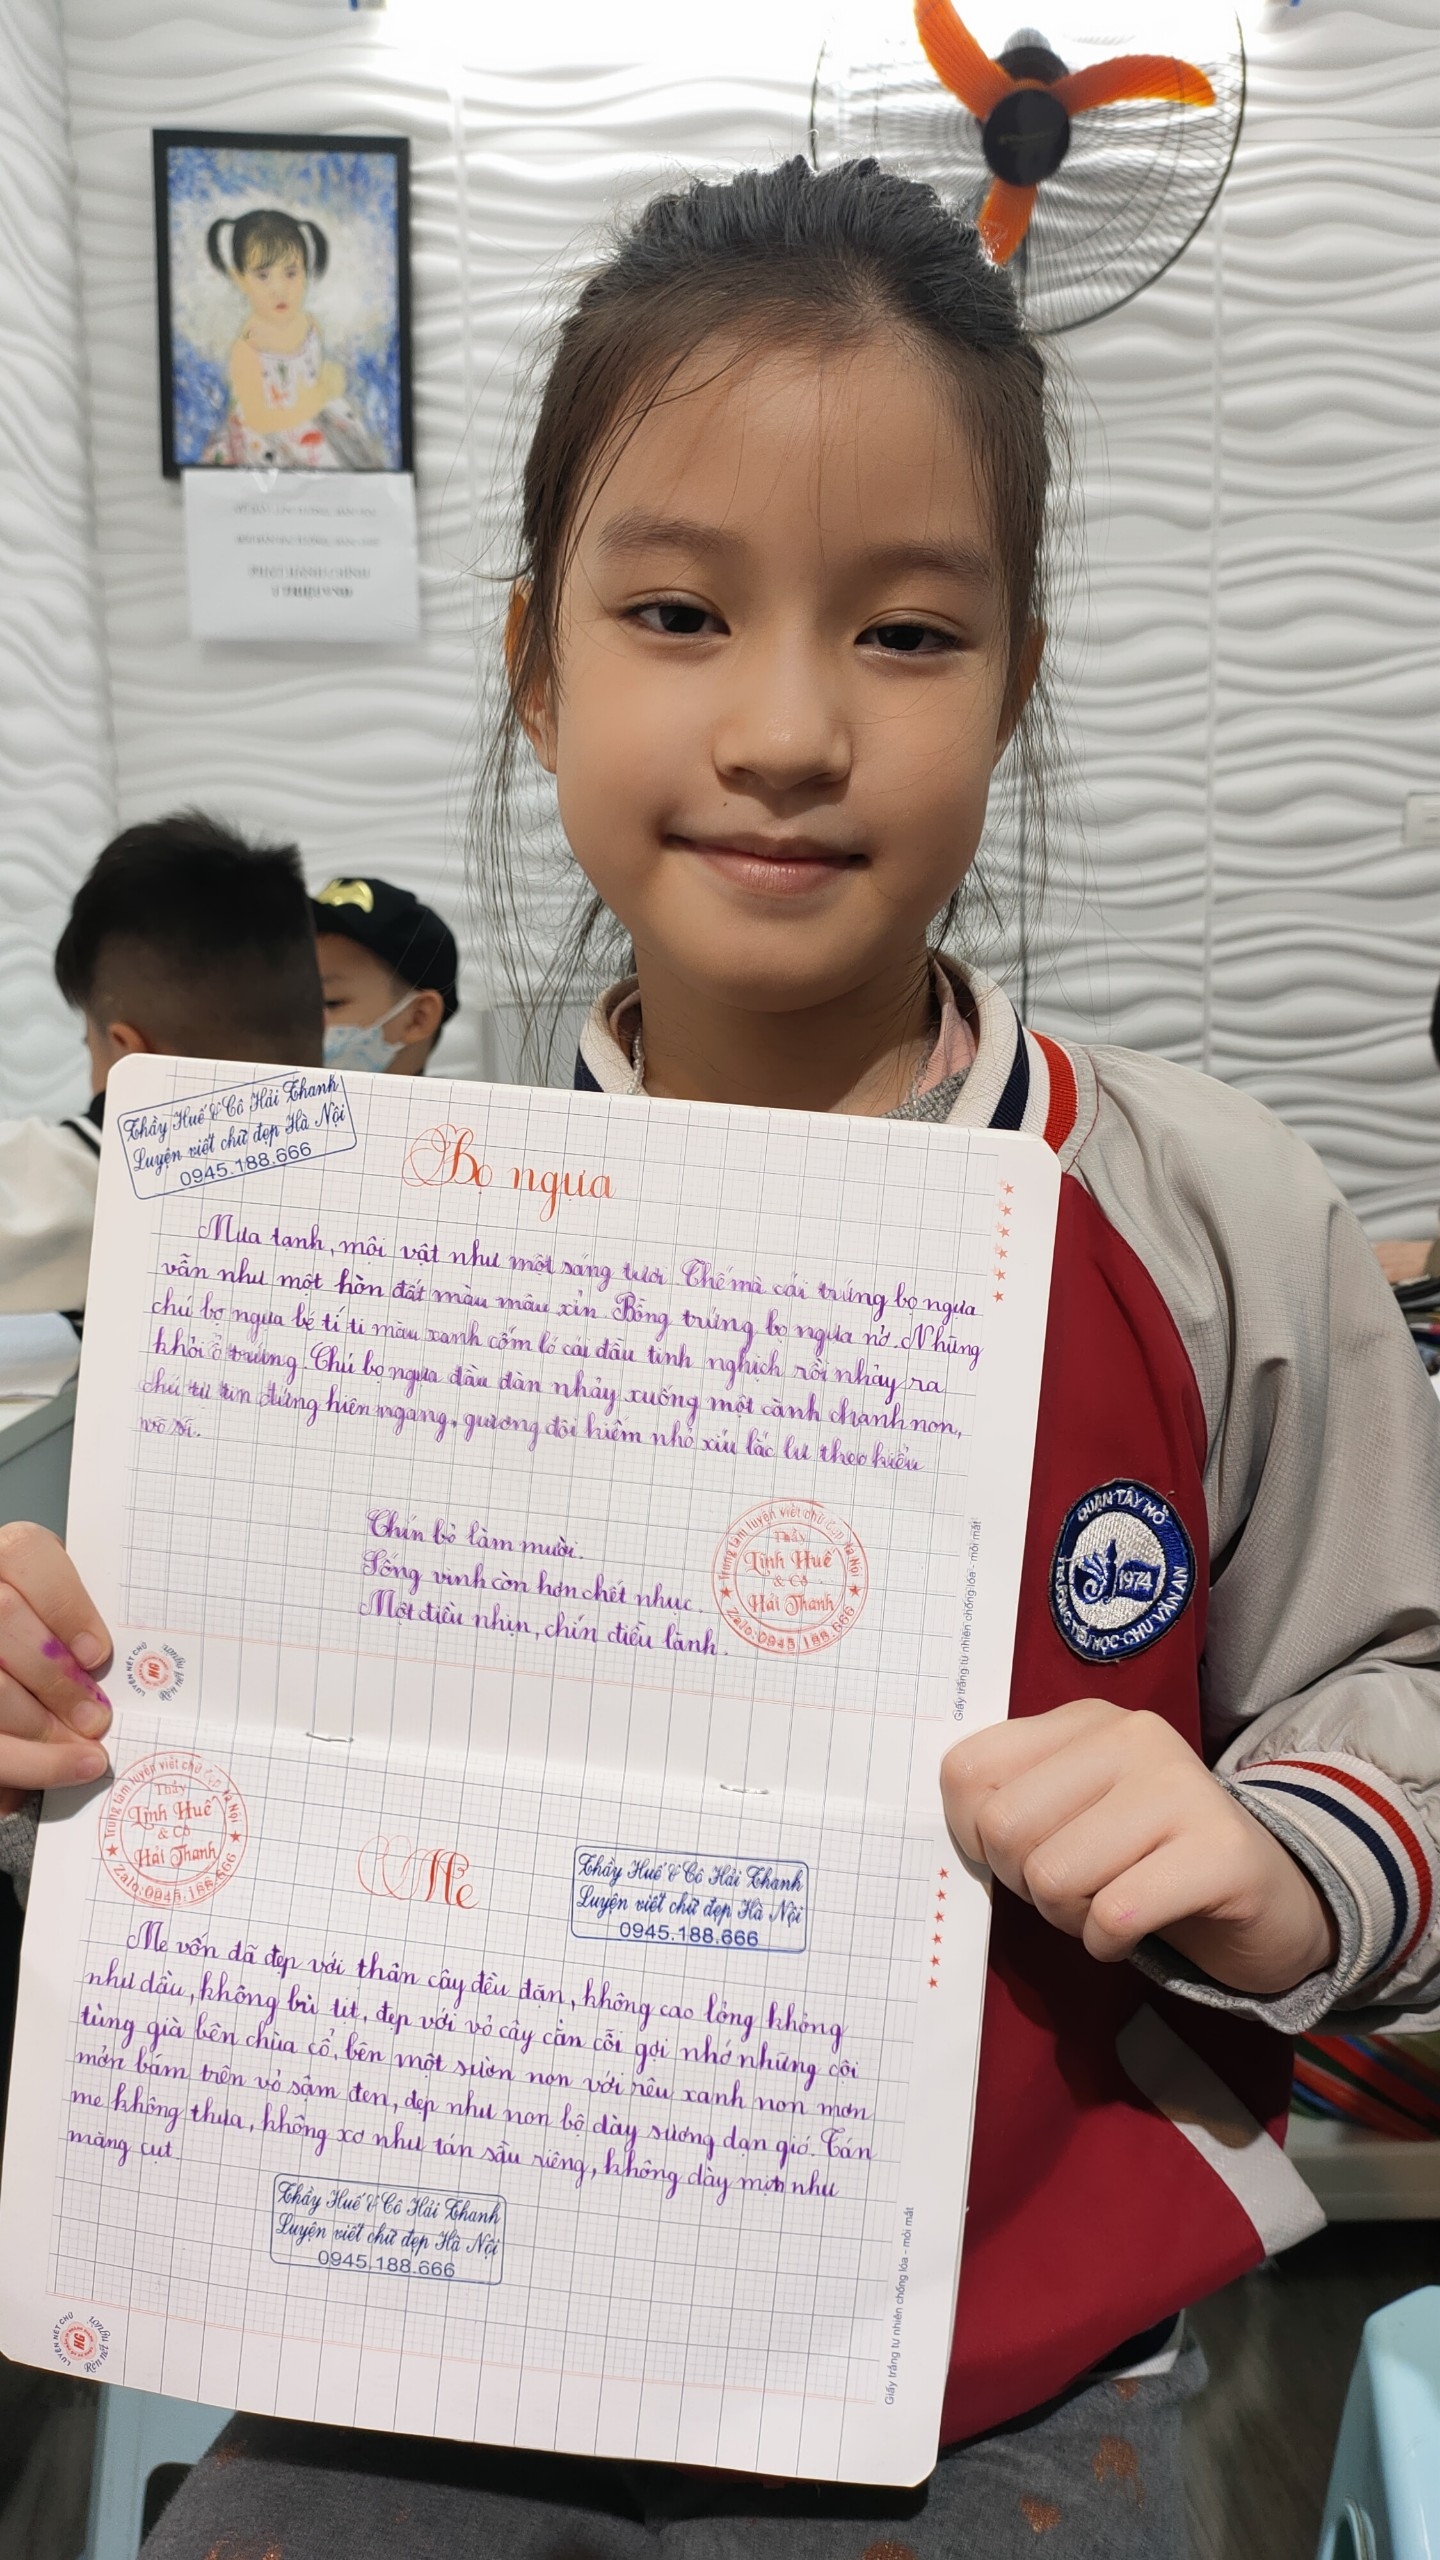 Thầy Huế & Cô Hải Thanh
Luyện viết chữ đẹp Hà Nội
0945.188.666
Bọ ngựa
Mưa tạnh, mội vật như một sáng tươi. Thế mà cái trứng bọ ngựa
vẫn như một hòn đất màu mâu xỉn. Bỗng trứng bọ ngựa nở. Những
chú bọ ngựa bé tí ti màu xanh cốm ló cái đầu tinh nghịch rồi nhảy ra
khỏi ổ trứng. Chú bọ ngựa đầu đàn nhảy xuống một cành chanh non,
chú tự tin đứng hiên ngang, gương đôi kiếm nhỏ xíu lắc lư theo kiểu
võ sĩ.
Chín bỏ làm mười.
Sống vinh còn hơn chết nhục.
Một điều nhịn, chín điều lành.
Trung tâm luyện viết chữ đẹp Hà Nội
Thầy
Lịnh Huế
& Cô
Hải Thanh
Zalo:0945.188.666
QUẬN TÂY HỒ
1974
TRƯỜNG TIỂU HỌC CHU VĂN AN
Giấy trắng tự nhiên chống lóa - mỏi mắt
LUYỆN NÉT CHỮ
HG
Rèn nết người
Trung tâm luyện viết chữ đẹp Hà Nội
Thầy
Lịnh Huế
& Cô
Hải Thanh
Zalo:0945.188.666
Me
Thầy Huế & Cô Hải Thanh
Luyện viết chữ đẹp Hà Nội
0945.188.666
Me vốn đã đẹp với thân cây đều đặn, không cao lồng khồng
như dầu, không bù tit, đẹp với vỏ cây cằn cỗi gợi nhớ những cội
tùng già bên chùa cổ, bên một sườn non với rêu xanh non mơn
mởn bám trên vỏ sậm đen, đẹp như non bộ dày sương dạn gió. Tán
me không thưa, không xơ như tán sầu riêng, không dày mịn như
măng cụt.
Thầy Huế & Cô Hải Thanh
Luyện viết chữ đẹp Hà Nội
0945.188.666
Giấy trắng tự nhiên chống lóa - mỏi mắt
LUYỆN NÉT CHỮ
HG
Rèn nết người